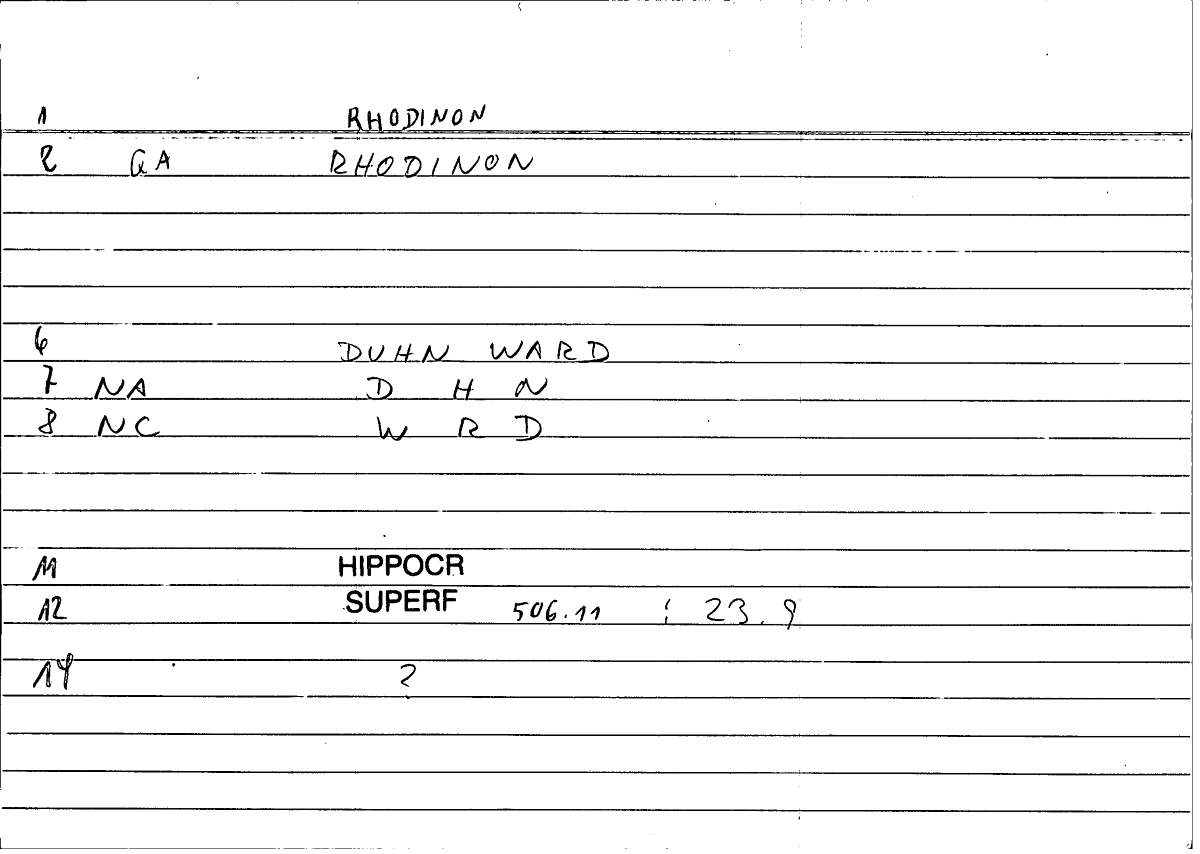 1 RHODINON
2 GA RHODINON
6 DUHN WARD
7 NA D H N
8 NC W R D
11 HIPPOCR
12 SUPERF 506.11 ; 23.9
14 ?